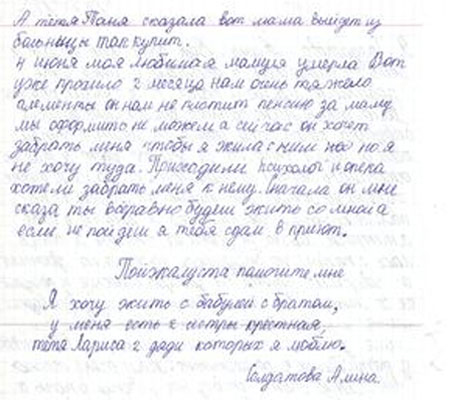 А тётя Таня сказала вот мама выйдет из
больницы так купит.
4 июня моя любимая мамуля умерла Вот
уже прошло 2 месяца нам очень тяжело
алементы он нам не плотит пенсию за маму
мы оформить не можем а сейчас он хочет
забрать меня чтобы я жила с ним но я
не хочу туда. Приходили психолог и опека
хотели забрать меня к нему. Сначала он мне
сказа ты всёравно будеш жить со мной а
если не пойдёш я тебя сдам в приют.
Пожалуста помогите мне
Я хочу жить с бабулей с братом,
у меня есть 2 сестры крестная,
тётя Лариса 2 дяди которых я люблю.
Солдатова Алина.